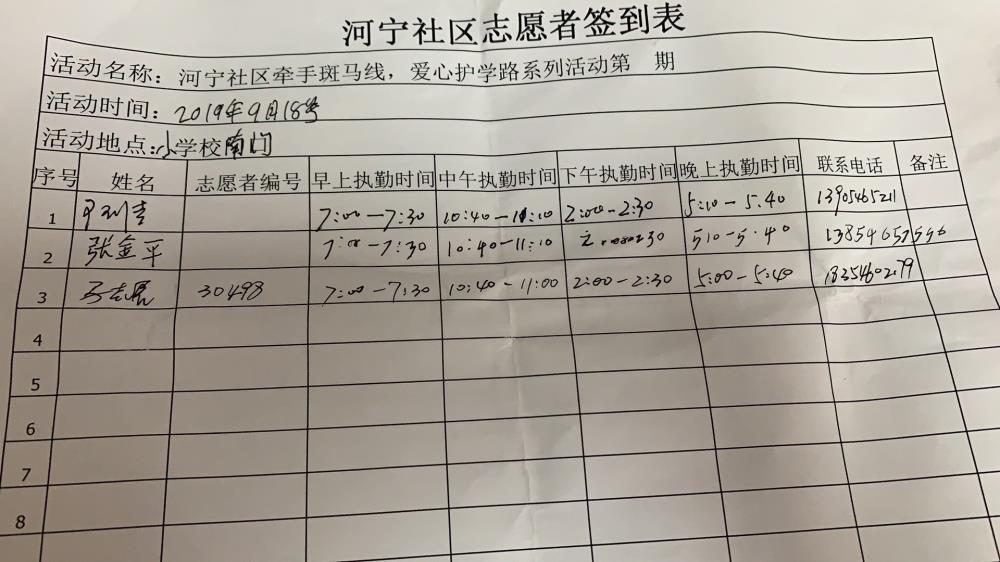 河宁社区志愿者签到表
活动名称：河宁社区牵手斑马线，爱心护学路系列活动第 期
活动时间：2019年9月18号
活动地点：小学校南门
序号 姓名 志愿者编号 早上执勤时间 中午执勤时间 下午执勤时间 晚上执勤时间 联系电话 备注
1 7:00-7:30 10:40-11:10 2:00-2:30 5:10-5:40 13905465211
2 张金平 7:00-7:30 10:40-11:10 510-5.40
3 30498 7:00-7:30 10:40-11:00 2:00-2:30 5:00-5:40
4
5
6
7
8